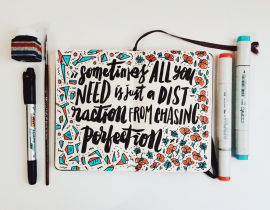 sometimes ALL you
NEED is just a DIST-
raction FROM CHASING
perfection